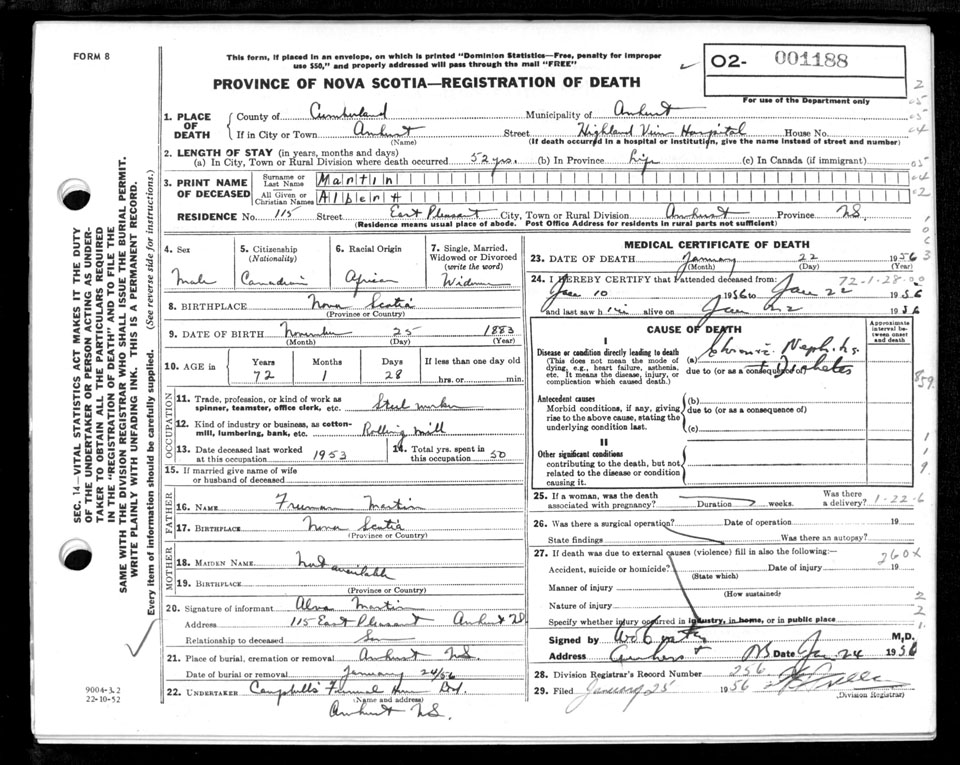 FORM 8
This form, if placed in an envelope, on which is printed "Dominion Statistics—Free, penalty for improper
use $50," and properly addressed will pass through the mail "FREE"
PROVINCE OF NOVA SCOTIA—REGISTRATION OF DEATH
O2- 001188
For use of the Department only
SEC. 14—VITAL STATISTICS ACT MAKES IT THE DUTY
OF THE UNDERTAKER OR PERSON ACTING AS UNDER-
TAKER TO OBTAIN ALL THE PARTICULARS REQUIRED
IN THE "REGISTRATION OF DEATH" AND TO FILE THE
SAME WITH THE DIVISION REGISTRAR WHO SHALL ISSUE THE BURIAL PERMIT.
WRITE PLAINLY WITH UNFADING INK. THIS IS A PERMANENT RECORD.
Every item of information should be carefully supplied. (See reverse side for instructions.)
1. PLACE OF DEATH
County of Cumberland Municipality of Amherst
If in City or Town Amherst Street Highland View Hospital House No.
(Name) (If death occurred in a hospital or institution, give the name instead of street and number)
2. LENGTH OF STAY (in years, months and days)
(a) In City, Town or Rural Division where death occurred 52 yrs. (b) In Province Life (c) In Canada (if immigrant)
3. PRINT NAME OF DECEASED
Surname or Last Name Martin
All Given or Christian Names Albert
RESIDENCE No. 115 Street East Pleasant City, Town or Rural Division Amherst Province NS.
(Residence means usual place of abode. Post Office Address for residents in rural parts not sufficient)
4. Sex
Male
5. Citizenship
(Nationality)
Canadian
6. Racial Origin
African
7. Single, Married,
Widowed or Divorced
(write the word)
Widower
8. BIRTHPLACE Nova Scotia
(Province or Country)
9. DATE OF BIRTH November 25 1883
(Month) (Day) (Year)
10. AGE in Years Months Days If less than one day old
72 1 28 hrs. or min.
OCCUPATION
11. Trade, profession, or kind of work as
spinner, teamster, office clerk, etc. Steel worker
12. Kind of industry or business, as cotton-
mill, lumbering, bank, etc. Rolling mill
13. Date deceased last worked
at this occupation 1953
14. Total yrs. spent in
this occupation 50
15. If married give name of wife
or husband of deceased
FATHER
16. NAME Freeman Martin
17. BIRTHPLACE Nova Scotia
(Province or Country)
MOTHER
18. MAIDEN NAME Not available
19. BIRTHPLACE
(Province or Country)
20. Signature of informant Alva Martin
Address 115 East Pleasant Amherst NS
Relationship to deceased Son
21. Place of burial, cremation or removal Amherst NS.
Date of burial or removal January 24/56
22. UNDERTAKER Campbells Funeral Home Ltd.
(Name and address)
Amherst NS.
9004-3.2
22-10-52
MEDICAL CERTIFICATE OF DEATH
23. DATE OF DEATH January 22 1956
(Month) (Day) (Year)
24. I HEREBY CERTIFY that I attended deceased from: 72-1-28-00
Jan 10 1956 to Jan 22 1956
and last saw him alive on Jan 22 1956
CAUSE OF DEATH
Approximate
interval be-
tween onset
and death
I
Disease or condition directly leading to death
(This does not mean the mode of
dying, e.g., heart failure, asthenia,
etc. It means the disease, injury, or
complication which caused death.)
(a) Chronic Nephritis
due to (or as a consequence of) Diabetes
Antecedent causes
Morbid conditions, if any, giving
rise to the above cause, stating the
underlying condition last.
(b)
due to (or as a consequence of)
(c)
II
Other significant conditions
contributing to the death, but not
related to the disease or condition
causing it.
25. If a woman, was the death
associated with pregnancy? Duration weeks. Was there
a delivery? 1-22-6
26. Was there a surgical operation? Date of operation 19
State findings Was there an autopsy?
27. If death was due to external causes (violence) fill in also the following:— 260X
Accident, suicide or homicide? Date of injury 19
(State which)
Manner of injury
(How sustained)
Nature of injury
Specify whether injury occurred in industry, in home, or in public place
Signed by M.D.
Address Amherst NS Date Jan 24 1956
28. Division Registrar's Record Number 256
29. Filed January 25 1956
(Division Registrar)